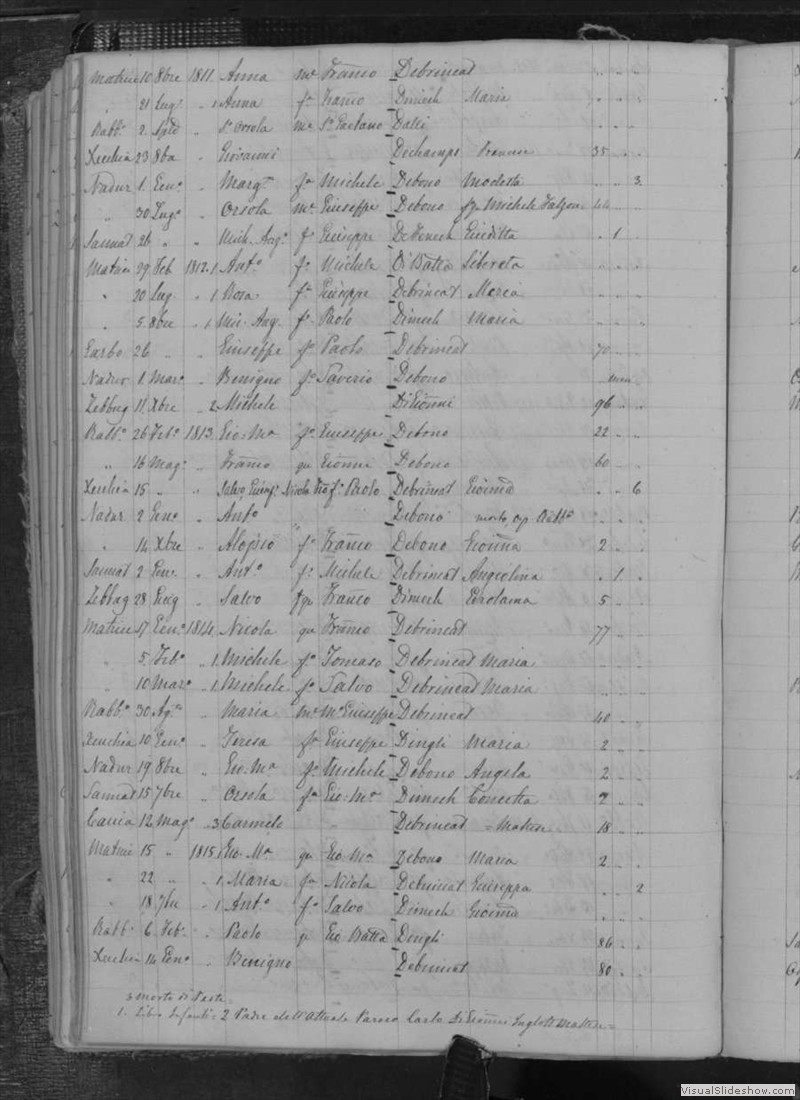 Matrice 10 8bre 1811. Anna me Franco Debrincat
" 21 Lug. " 1 Anna fa Franco Dimech Maria
Rabb.o 2 " St Orsola me Sr Gaetano Dalli
Xeuchia 23 8bre " Giovanni Dechamps 35
Nadur 1 Gen.o " Marg.ta fa Michele Debono Modesta 3
" 30 Lug.o " Orsola me Giuseppe Debono fq Michele Falzon 44
Sannat 26 " " Mich. Ang.o fo Giuseppe Giuditta 1
Matrice 29 Feb 1812. 1 Ant.o fo Michele Di Batta Liberata
" 20 Lug " 1 Rosa fa Giuseppe Debrincat Maria
" 5 8bre " 1 Mic. Ang. fo Paolo Dimech Maria
Garbo 26 " " Giuseppe fo Paolo Debrincat 70
Nadur 1 Mar.o " Benigno fo Saverio Debono
Zebbug 11 Xbre " 2 Michele DiGionni 96
Rabb.o 26 Feb.o 1813. Gio. Ma fo Giuseppe Debono 22
" 16 Mag.o " Franco qm Gionni Debono 60
Xeuchia 15 " " Salvo, Nicola fo Paolo Debrincat Gionna 6
Nadur 2 Gen.o " Ant.o Debono morto, Rabb.o
" 14 Xbre " Aloysio fo Franco Debono Gionna 2
Sannat 2 Gen. " Ant.o fo Michele Debrincat Angiolina 1
Zebbug 28 Giug " Salvo fqm Franco Dimech Gerolama 5
Matrice 17 Gen.o 1814. Nicola qm Franco Debrincat 77
" 5 Feb.o " 1 Michele fo Tomaso Debrincat Maria
" 10 Mar.o " 1 Michele fo Salvo Debrincat Maria
Rabb.o 30 Ag.to " Maria me Mo Giuseppe Debrincat 40
Xeuchia 10 Gen.o " Teresa fa Giuseppe Dingli Maria 2
Nadur 19 8bre " Gio. Ma fo Michele Debono Angela 2
Sannat 15 7bre " Orsola fa Gio. Ma Dimech Concetta 2
Caccia 12 Mag.o " 3 Carmelo Debrincat = Matrice 18
Matrice 15 " 1815. 1 Gio. Ma qm Gio. Ma Debono Maria 2
" 22 " " 1 Maria fa Nicola Debrincat Giuseppa 2
" 18 7bre " 1 Ant.o fo Salvo Dimech Gionna
Rabb.o 6 Feb.o " Paolo q Gio Batta Dingli 86
Xeuchia 14 Gen.o " Benigno Debrincat 80
3 morto di Peste.
1. Libro Infanti = 2 Padre dell'Attuale Parroco Carlo DiGionni Inglott
VisualSlideshow.com